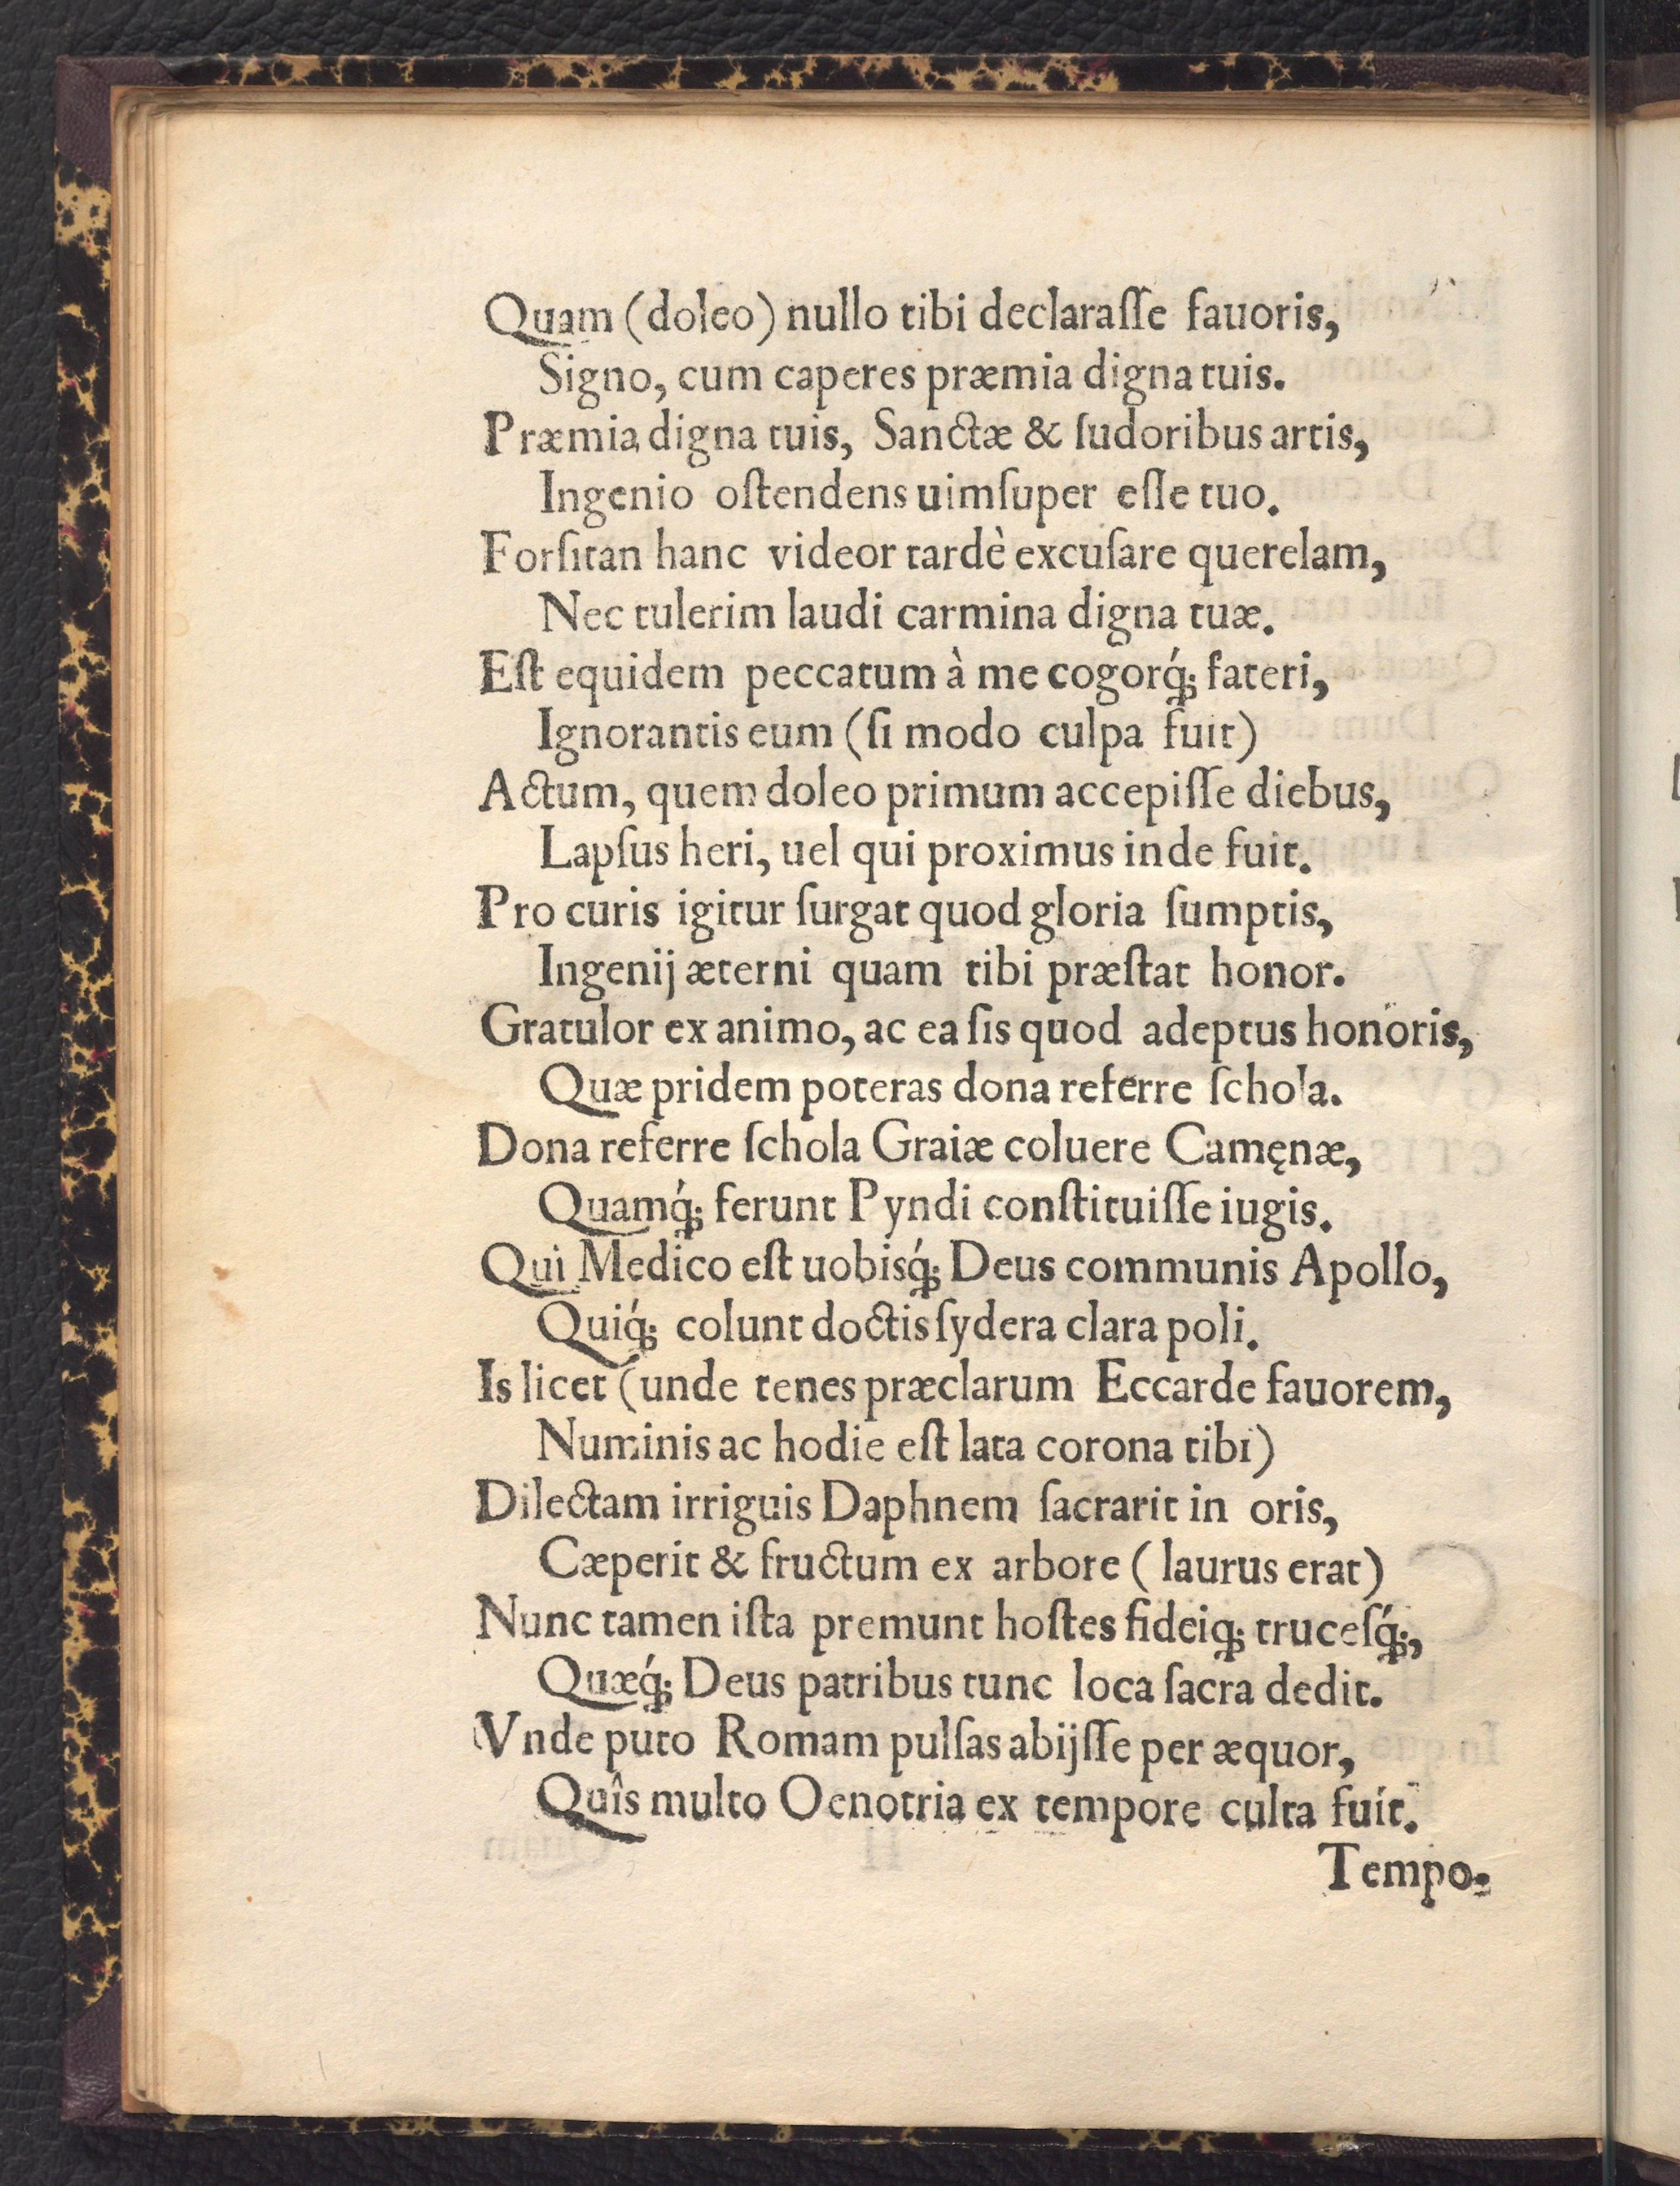 Quam (doleo) nullo tibi declaraſſe fauoris,
Signo, cum caperes præmia digna tuis.
Præmia digna tuis, Sanctæ & ſudoribus artis,
Ingenio oſtendens uimſuper eſſe tuo.
Forſitan hanc videor tardè excuſare querelam,
Nec tulerim laudi carmina digna tuæ.
Eſt equidem peccatum à me cogorq́; fateri,
Ignorantis eum (ſi modo culpa fuit)
Actum, quem doleo primum accepiſſe diebus,
Lapſus heri, uel qui proximus inde fuit.
Pro curis igitur ſurgat quod gloria ſumptis,
Ingenij æterni quam tibi præſtat honor.
Gratulor ex animo, ac ea ſis quod adeptus honoris,
Quæ pridem poteras dona referre ſchola.
Dona referre ſchola Graiæ coluere Camęnæ,
Quamq́; ferunt Pyndi conſtituiſſe iugis.
Qui Medico eſt uobisq́; Deus communis Apollo,
Quiq́; colunt doctis ſydera clara poli.
Is licet (unde tenes præclarum Eccarde fauorem,
Numinis ac hodie eſt lata corona tibi)
Dilectam irriguis Daphnem ſacrarit in oris,
Cæperit & fructum ex arbore (laurus erat)
Nunc tamen iſta premunt hoſtes fideiq; truceſq́;,
Quæq́; Deus patribus tunc loca ſacra dedit.
Vnde puto Romam pulſas abijſſe per æquor,
Quîs multo Oenotria ex tempore culta fuit.
Tempo-